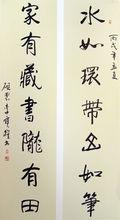 丙戌年孟夏
水如環帶山如筆
家有藏書隴有田